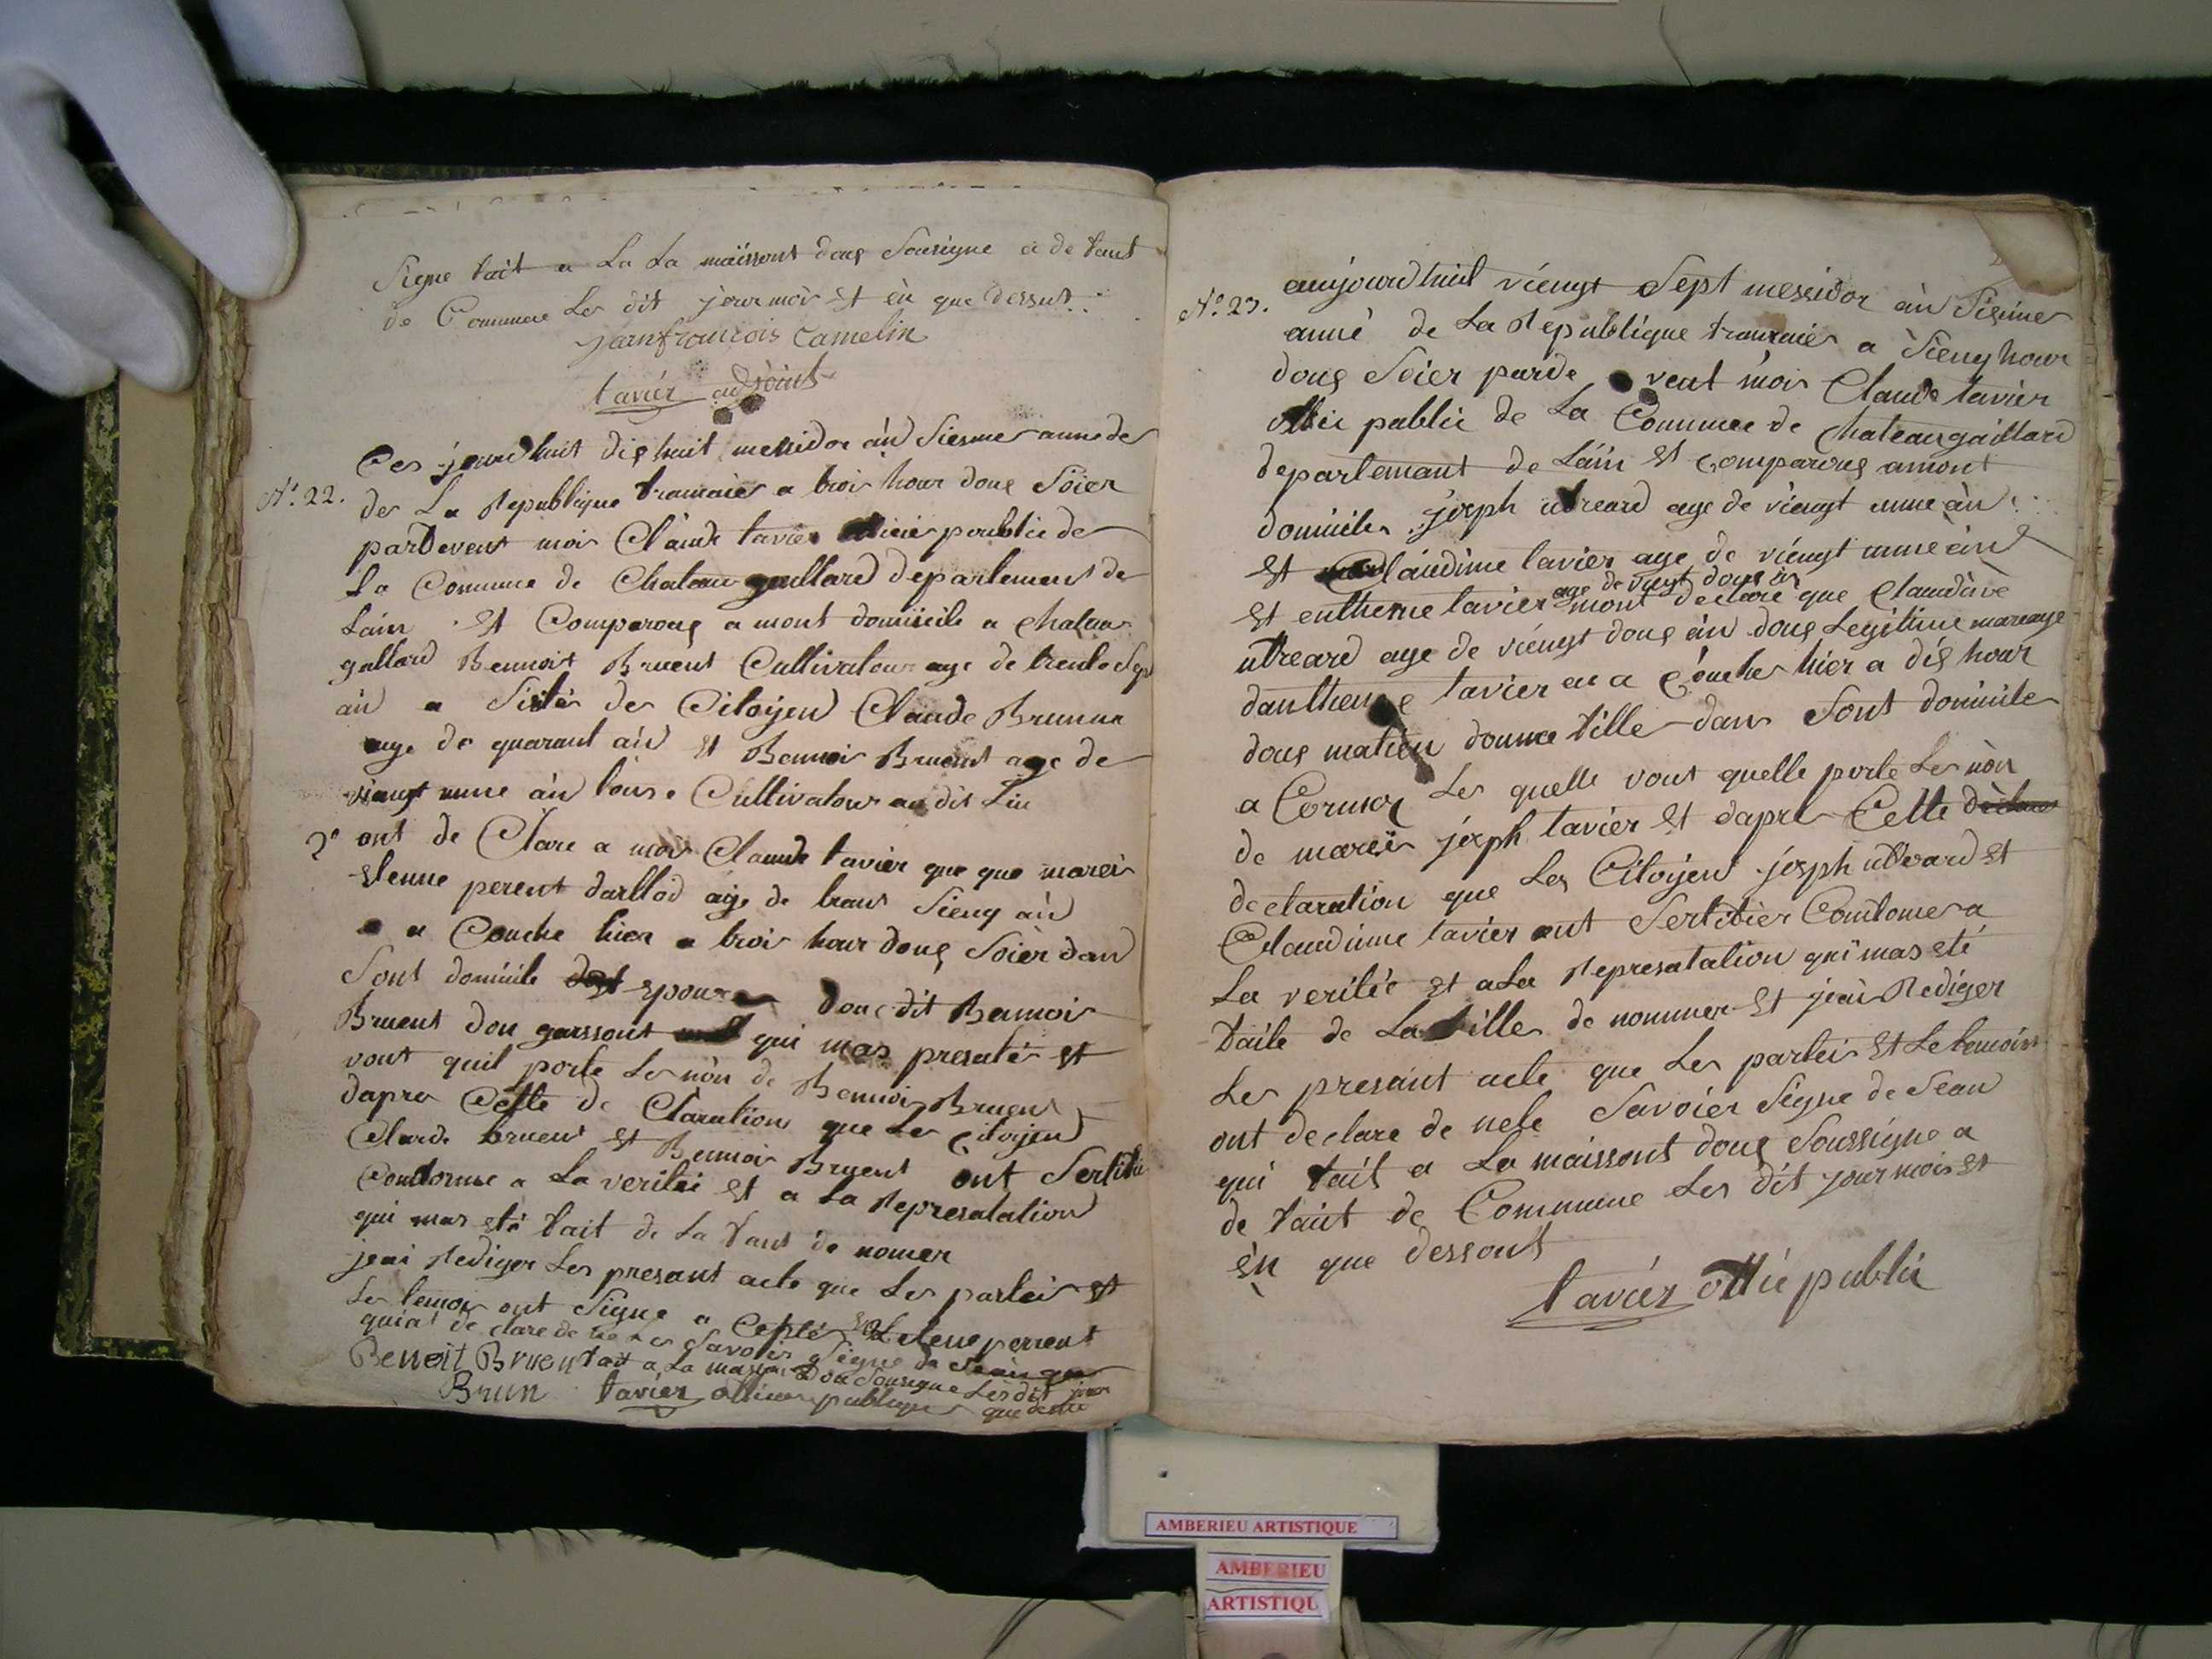 Signe tait a La La maissont douq Sousigne a de tant
de Commune Les dit jour mois Et èn que dessut
jeanfrancois Camelin
tavier adjoint
Ces jourdhuit dishuit messidor àn Siesme anne de
N°. 22. de La Republique franncaies a trois hour douq Soier
pardevent mois Claude tavier publie de
La Commune de Chateau gaillard departement de
Lain Et Comparouq a mont domicile a Chateau
gallard Bennoist Bruent Cultivatour age de trente Sept
àn a Sisté des Citoyen Claude Brunne
age de quarant àn Et Bennoi Bruent age de
viengt unne àn tous Cultivatour au dit Lieu
ont de Clare a mois Claude tavier que que mareis
Etenne perent darllod age de trant Sienq àn
a Couche hier a trois hour douq Soièr dan
Sont domicile Epouse doudit Bennoi
Bruent don garssont qui mas presaté Et
vout quil porte Les nòn de Bennois Bruent
dapres Cette de Claration que Les Citoyen
Clarde bruent Et Bennois Bruent ont Sertifié
Condorme a La verités Et a La Represatation
qui mas eté tait de La tant de nomer
jeai Rediger Les presant acte que Les parteis Et
Les temois ont Signe a Cepté Etene perrent
quia de clare de ne Savoir Signe de
Benoit Bruen tait a La maison Dou Sousigne Les dit jour
Brun tavier publique que desu
N°. 23. aujourdhuit viengt Sept messidor àn Siesme
anné de La Republique franncaies a Sienq hour
douq Soier parde vent mois Claude tavier
ottie publie de La Commune de Chateaugaillard
departemant de Lain Et comparouq amont
domicile joseph utreard age de viengt unne àn
Et Claudinne tavier age de viengt unne àn
Et entheme tavier age de viegt dous àn mont declaré que Claudine
utreard age de viéngt douq àn douq Legitime mareage
danthenne tavier a a Couche hier a dis hour
douq matien donne tille dans Sont domicile
a Cormoz Les quelle vout quelle porte Les nòn
de mareis joseph tavier Et dapre Cette
declaration que Les Citoyent joseph utreard Et
Claudinne tavier ont Sertitier Contome a
La verités Et a La Represatation qui mas eté
taite de La tille de nommer Et jeai Rediger
Les presant acte que Les parteis Et Le temoins
ont declare de nete Savoier Signe de Sean
qui tait a La maissont douq Soussigne a
de tait de Commune Les dit jour mois Et
èn que dessout
tavier ottie publie
AMBERIEU ARTISTIQUE
AMBERIEU
ARTISTIQU